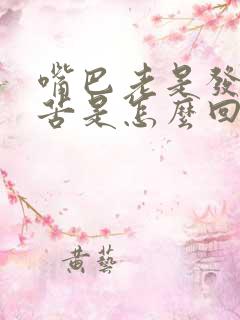 嘴巴老是發
苦是怎麼回
黄藝